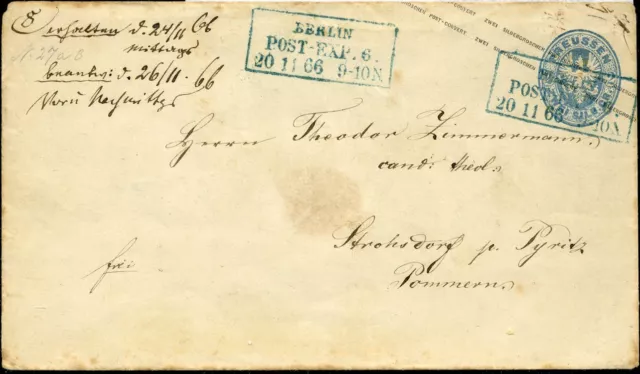 8
erhalten d. 24/11 66
mittags
N. 27a8
beantw: d. 26/11. 66
Vorm Nachmittgs
BERLIN
POST-EXP. 6.
20 11 66 9-10N
POST-COUVERT ZWEI SILBERGROSCHEN
PREUSSEN
ZWEI SILB. GR.
POST
20 11 66 10N
Herrn Theodor Zimmermann.
cand. theol.
Strohsdorf p. Pyritz
Pommern.
frei